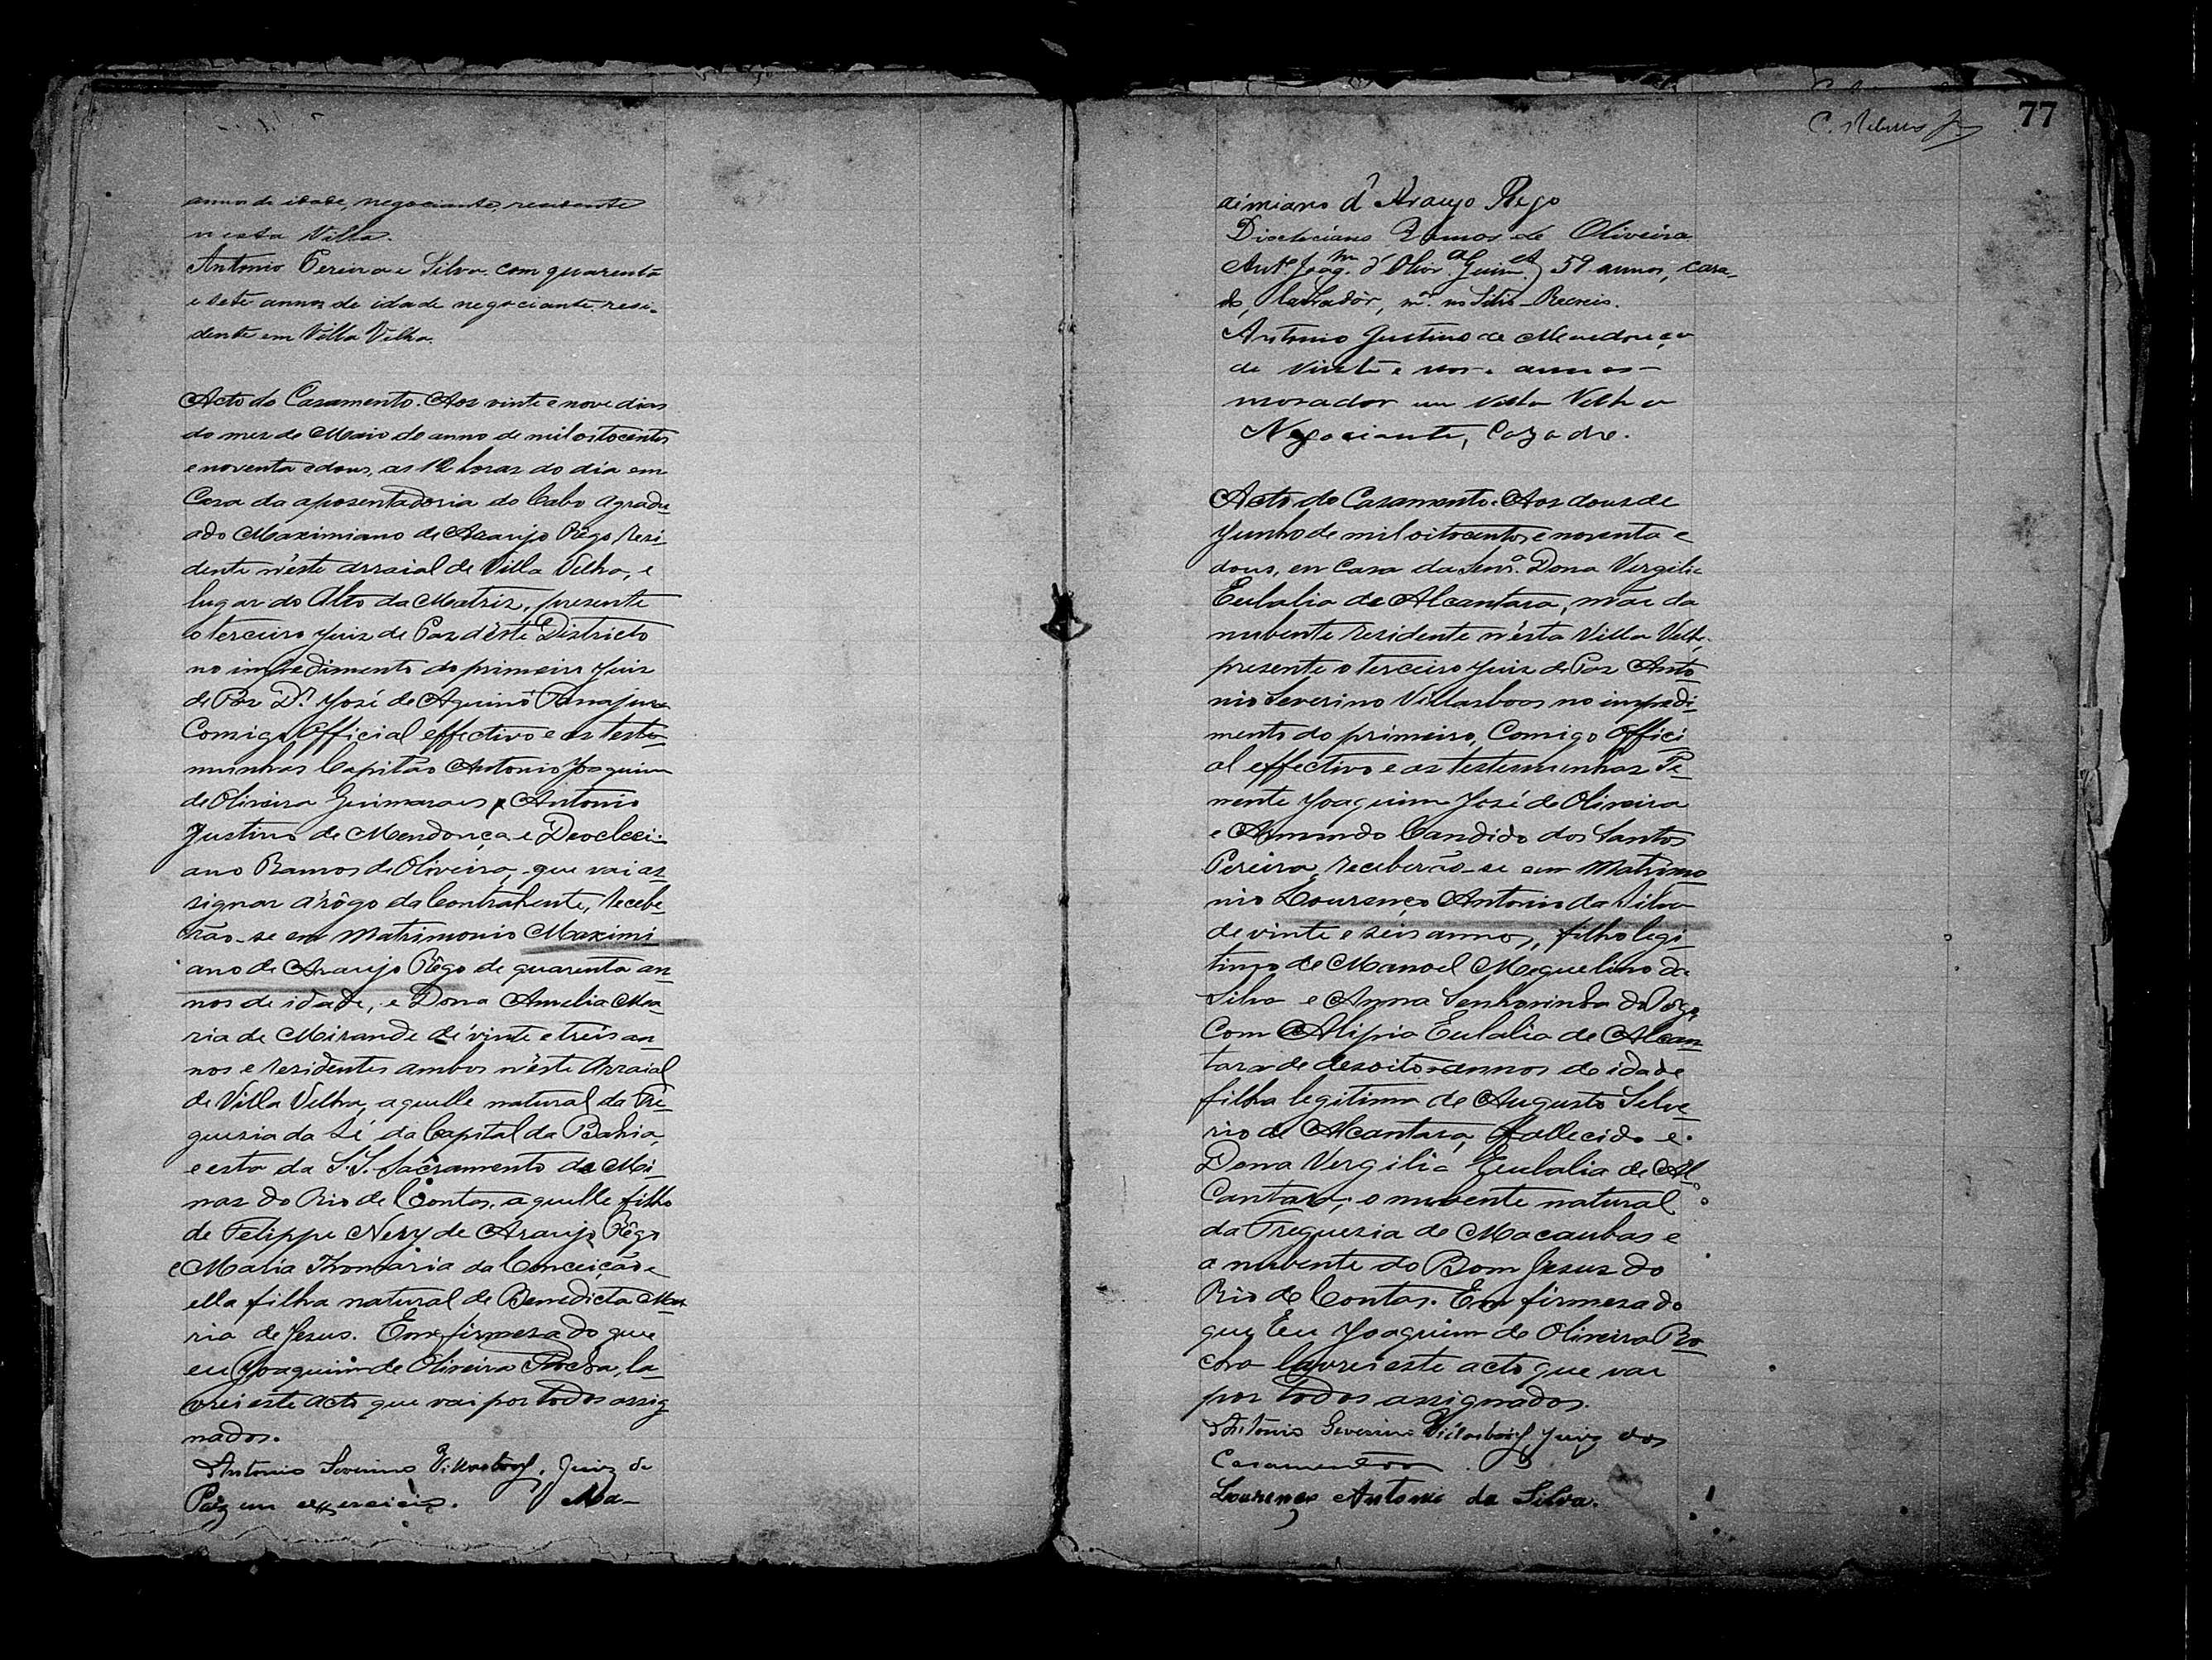 annos de idade, negociante, residente
nesta Villa.
Antonio Pereira e Silva com quarenta
e sete annos de idade negociante resi-
dente em Villa Velha.
Acto do Casamento. Aos vinte e nove dias
do mes de Maio do anno de mil oitocentos
e noventa e dous, as 12 horas do dia em
Casa da aposentadoria do Cabo agradu-
ado Maximiano de Araujo Rêgo, resi-
dente n'éste arraial de Villa Velha, e
lugar do Alto da Matriz, presente
o terceiro Juiz de Paz d'éste Districto
no impedimento do primeiro Juiz
de Paz Dr. José de Aquino Tanajura
Comigo Official effectivo e as teste-
munhas Capitão Antonio Joaquim
de Oliveira Guimaraes, Antonio
Justino de Mendonça e Deocleci-
ano Ramos de Oliveira, que vai as-
signar á rôgo da Contrahente, recebe-
rão-se em Matrimonio Maximi-
ano de Araujo Rêgo de quarenta an-
nos de idade, e Dona Amelia Ma-
ria de Mirande de vinte e treis an-
nos e residentes ambos n'éste Arraial
de Villa Velha, aquelle natural da Fre-
guezia da Sé da Capital da Bahia,
e esta da S.S. Sacramento de Mi-
nas do Rio de Contas, aquelle filho
de Felippe Nery de Araujo Rêgo
e Maria Thomaria da Conceição e
ella filha natural de Benedicta Ma-
ria de Jesus. Em firmeza do que
eu Joaquim de Oliveira Rocha, la-
vrei este acto que vai por todos assig
nados.
Antonio Severino Villasboas, Juiz de
Paz em exercicio. Ma-
77
ximiano d'Araujo Rego
Diocleciano Ramos de Oliveira
Anto. Joaqm. d'Olivra. Guimes. 59 annos, casa-
do, lavrador, mor. no Sitio
Antonio Justino de Mendonça
de vinte e nove annos
morador em Villa Velha
Negociante, Cazado.
Acto do Casamento. Aos dous de
Junho de mil oitocentos e noventa e
dous, em Casa da Senra. Dona Vergilia
Eulalia de Alcantara, mãe da
nubente residente n'ésta Villa Velha,
presente o terceiro Juiz de Paz Anto-
nio Severino Villasboas no impedi-
mento do primeiro, Comigo Offici
al effectivo e as testemunhas Te-
nente Joaquim José de Oliveira
e Armindo Candido dos Santos
Pereira, receberão-se em Matrimo
nio Lourenço Antonio da Silva
de vinte e seis annos, filho legi-
timo de Manoel Meguelino da
Silva e Anna Senhorinha
Com Alipia Eulalia de Alcan-
tara de desoito annos de idade
filha legitima de Augusto Silve-
rio de Alcantara, fallecido e
Dona Vergilia Eulalia de Al-
Cantara; o nubente natural
da Freguezia de Macaubas e
a nubente do Bom Jesus do
Rio de Contas. Em firmesa do
que Eu Joaquim de Oliveira Ro-
cha lavrei este acto que vai
por todos assignados.
Antonio Severino Villasboas, Juiz dos
Casamentos.
Lourenço Antonio da Silva.